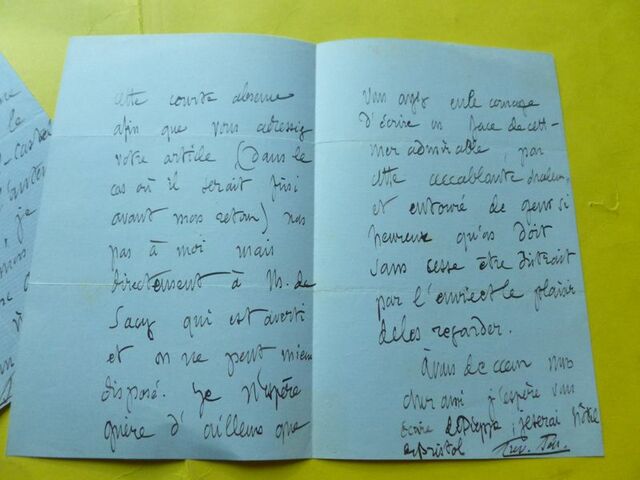 cette courte absence
afin que vous adressiez
votre article (Dans le
cas où il serait fini
avant mon retour) non
pas à moi mais
directement à M. de
Sacy qui est averti
et on ne peut mieux
disposé. Je n'espère
guère d'ailleurs que
Vous ayez eu le courage
d'écrire en face de cette
mer admirable, par
cette accablante chaleur,
et entouré de gens si
heureux qu'on doit
sans cesse être distrait
par l'envie et le plaisir
de les regarder.
À vous de cœur mon
cher ami j'espère vous
écrire de Dieppe, je serai hôtel
de Bristol
le
je